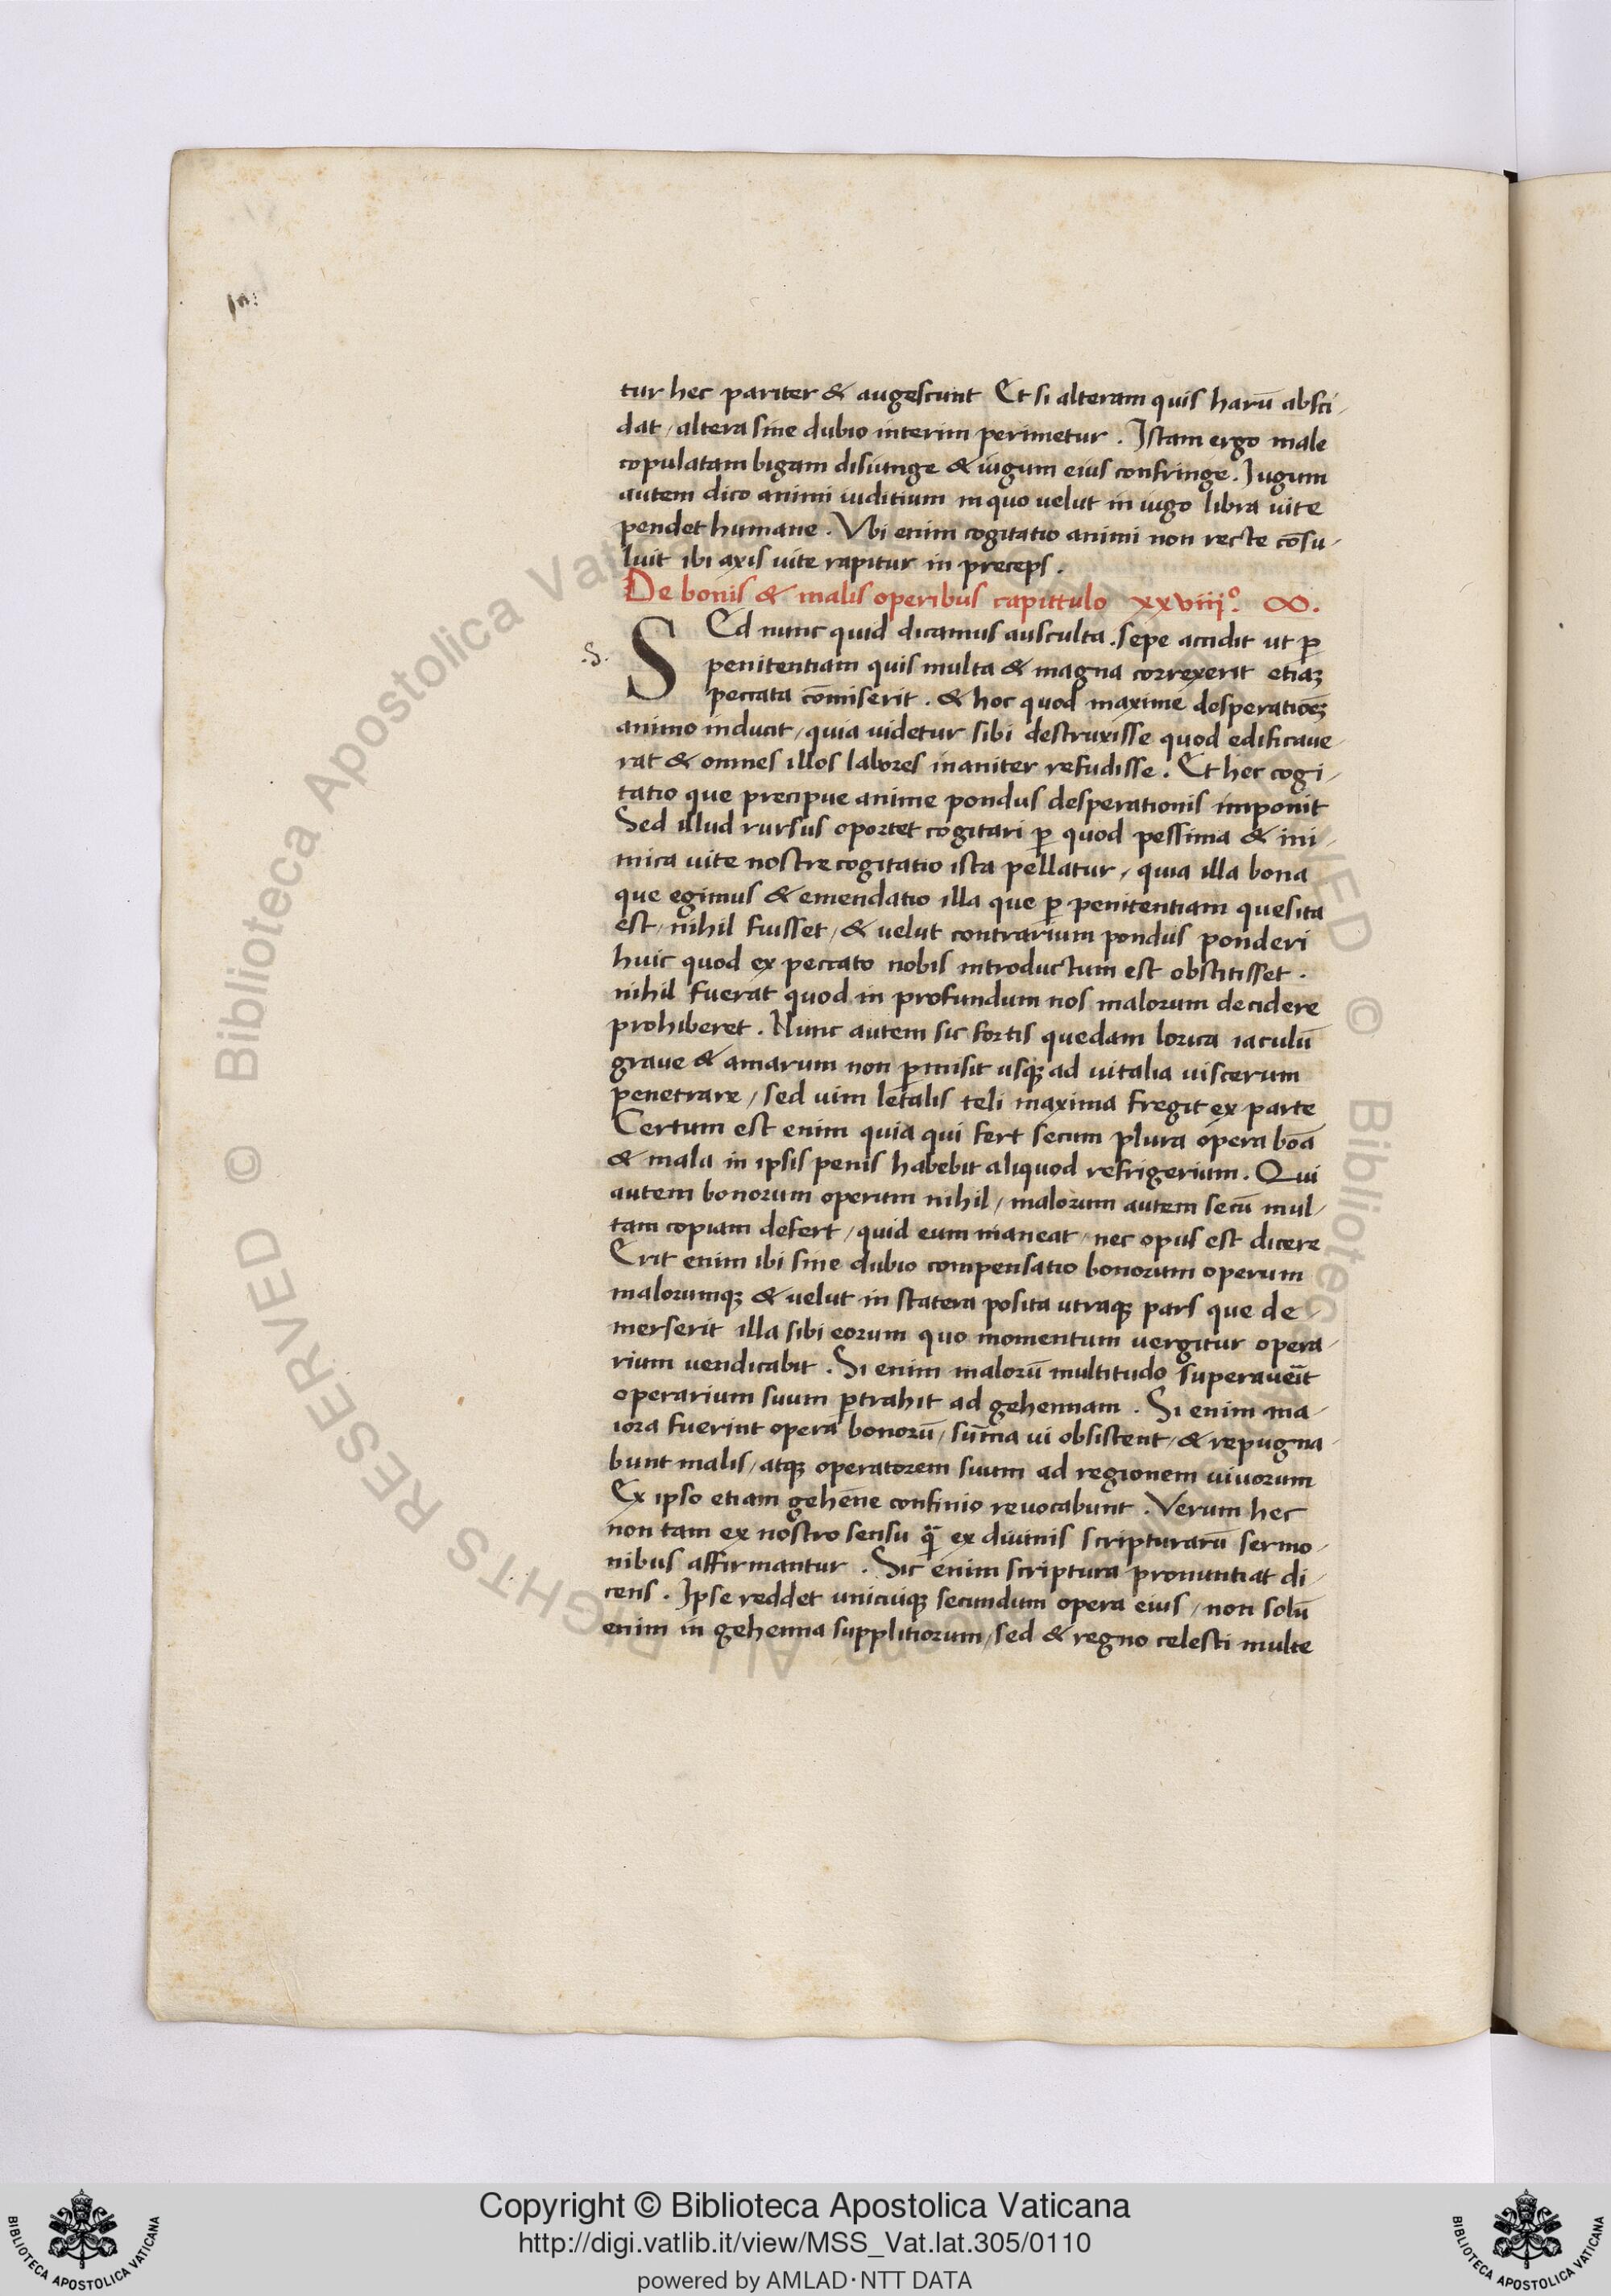 tur hec pariter & augescunt Et si alteram quis harū absci/
dat / altera sine dubio interim perimetur . Istam ergo male
copulatam bigam disiunge & iugum eius confringe . Iugum
autem dico animi iuditium in quo uelut in iugo libra uite
pendet humane . Vbi enim cogitatio animi non recte cōsu/
luit ibi axis uite rapitur in preceps .
De bonis & malis operibus capittulo xxviii°. ꝏ.
.s.
SEd nunc quid dicamus ausculta . sepe accidit ut ꝑ
penitentiam quis multa & magna correxerit etiaꝫ
peccata cōmiserit . & hoc quod maxime desperatiōeꝫ
animo inducit / quia uidetur sibi destruxisse quod edificaue/
rat & omnes illos labores inaniter refudisse . Et hec cogi/
tatio que precipue anime pondus desperationis imponit
Sed illud rursus oportet cogitari ꝑ quod pessima & ini/
mica uite nostre cogitatio ista pellatur / quia illa bona
que egimus & emendatio illa que ꝑ penitentiam quesita
est / nihil fuisset / & uelut contrarium pondus ponderi
huic quod ex peccato nobis introductum est obstitisset .
nihil fuerat quod in profundum nos malorum decidere
prohiberet . Nunc autem sic fortis quedam lorica iaculū
graue & amarum non ꝑmisit usqꝫ ad uitalia uiscerum
penetrare / sed uim letalis teli maxima fregit ex parte
Certum est enim quia qui fert secum plura opera bōa
& mala in ipsis penis habebit aliquod refrigerium . Qui
autem bonorum operum nihil / malorum autem secū mul/
tam copiam defert / quid eum maneat / nec opus est dicere
Erit enim ibi sine dubio compensatio bonorum operum
malorumqꝫ & uelut in statera posita utraqꝫ pars que de/
merserit illa sibi eorum quo momentum uergitur opera/
rium uendicabit . Si enim malorū multitudo superaueīt
operarium suum ꝑtrahit ad gehennam . Si enim ma/
iora fuerint opera bonorū / sūma ui obsistent / & repugna/
bunt malis / atqꝫ operatorem suum ad regionem uiuorum
Ex ipso etiam gehēne confinio reuocabunt . Verum hec
non tam ex nostro sensu q̄ ex diuinis scripturarū sermo/
nibus affirmantur . Sic enim scriptura pronuntiat di/
cens . Ipse reddet unicuiqꝫ secundum opera eius / non solū
enim in gehenna supplitiorum / sed & regno celesti multe
© Biblioteca Apostolica Vaticana ALL RIGHTS RESERVED
Copyright © Biblioteca Apostolica Vaticana
http://digi.vatlib.it/view/MSS_Vat.lat.305/0110
powered by AMLAD·NTT DATA
BIBLIOTECA APOSTOLICA VATICANA
BIBLIOTECA APOSTOLICA VATICANA